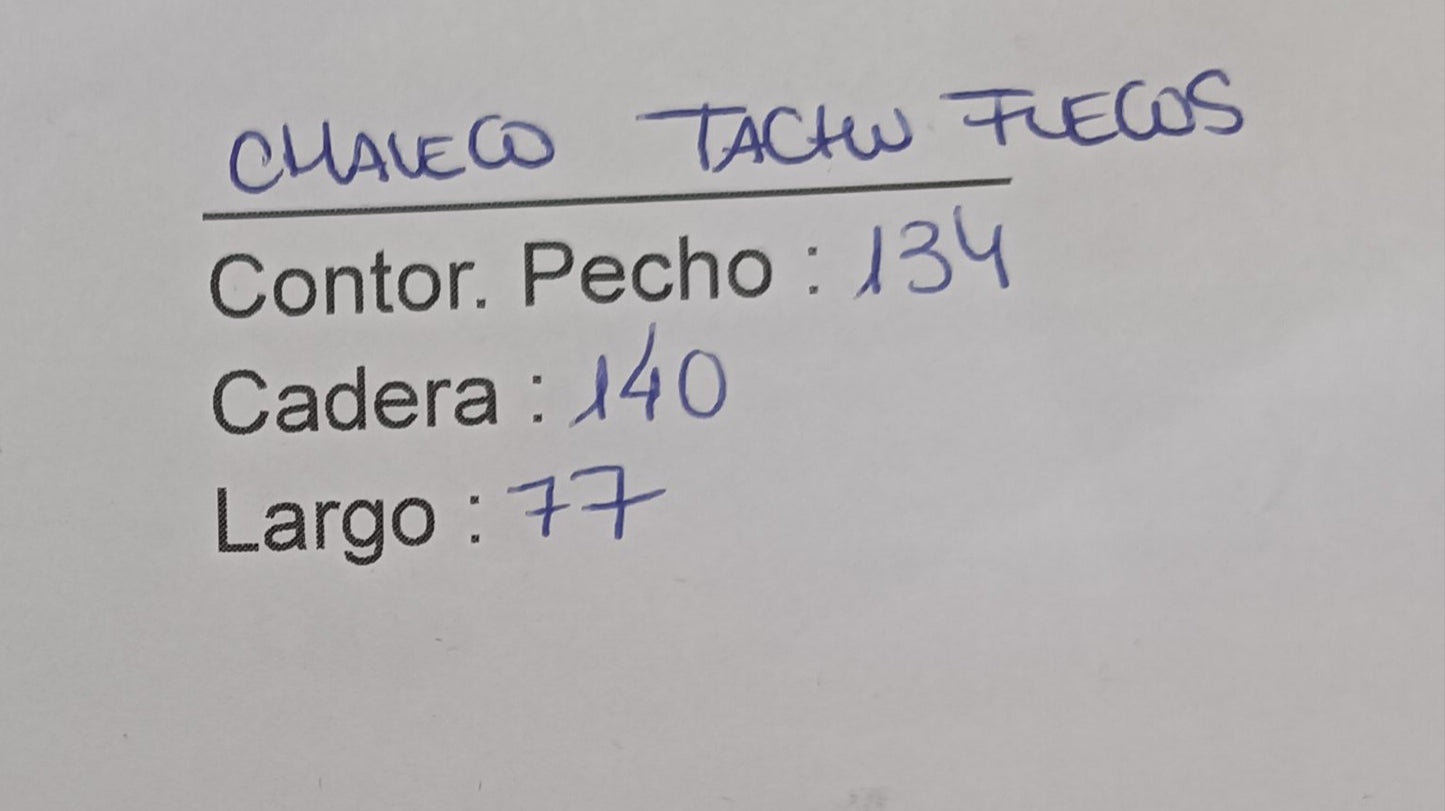 CHALECO TACHU FLECOS
Contor. Pecho : 134
Cadera : 140
Largo : 77